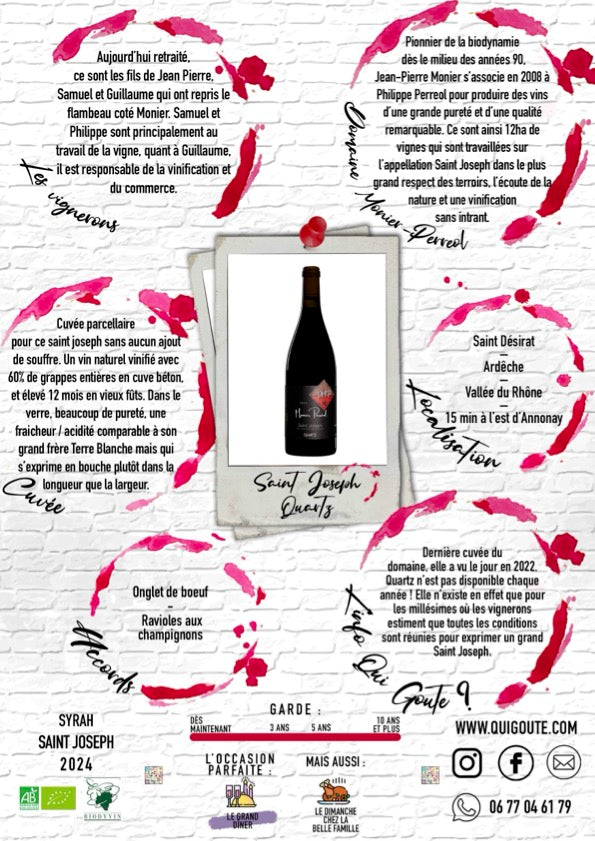 Aujourd'hui retraité,
ce sont les fils de Jean Pierre,
Samuel et Guillaume qui ont repris le
flambeau coté Monier. Samuel et
Philippe sont principalement au
travail de la vigne, quant à Guillaume,
il est responsable de la vinification et
du commerce.
Les vignerons
Pionnier de la biodynamie
dès le milieu des années 90,
Jean-Pierre Monier s'associe en 2008 à
Philippe Perreol pour produire des vins
d'une grande pureté et d'une qualité
remarquable. Ce sont ainsi 12ha de
vignes qui sont travaillées sur
l'appellation Saint Joseph dans le plus
grand respect des terroirs, l'écoute de la
nature et une vinification
sans intrant.
Domaine Monier-Perreol
Cuvée parcellaire
pour ce saint joseph sans aucun ajout
de souffre. Un vin naturel vinifié avec
60% de grappes entières en cuve béton,
et élevé 12 mois en vieux fûts. Dans le
verre, beaucoup de pureté, une
fraicheur / acidité comparable à son
grand frère Terre Blanche mais qui
s'exprime en bouche plutôt dans la
longueur que la largeur.
Cuvée
Saint Joseph
Quartz
Saint Désirat
–
Ardêche
–
Vallée du Rhône
–
15 min à l'est d'Annonay
Localisation
Onglet de boeuf
–
Ravioles aux
champignons
Accords
Dernière cuvée du
domaine, elle a vu le jour en 2022.
Quartz n'est pas disponible chaque
année ! Elle n'existe en effet que pour
les millésimes où les vignerons
estiment que toutes les conditions
sont réunies pour exprimer un grand
Saint Joseph.
L'info Qui Goute ?
SYRAH
SAINT JOSEPH
2024
AB
BIODYVIN
GARDE :
DÈS
MAINTENANT
3 ANS
5 ANS
10 ANS
ET PLUS
L'OCCASION
PARFAITE :
LE GRAND
DINER
MAIS AUSSI :
LE DIMANCHE
CHEZ LA
BELLE FAMILLE
WWW.QUIGOUTE.COM
06 77 04 61 79